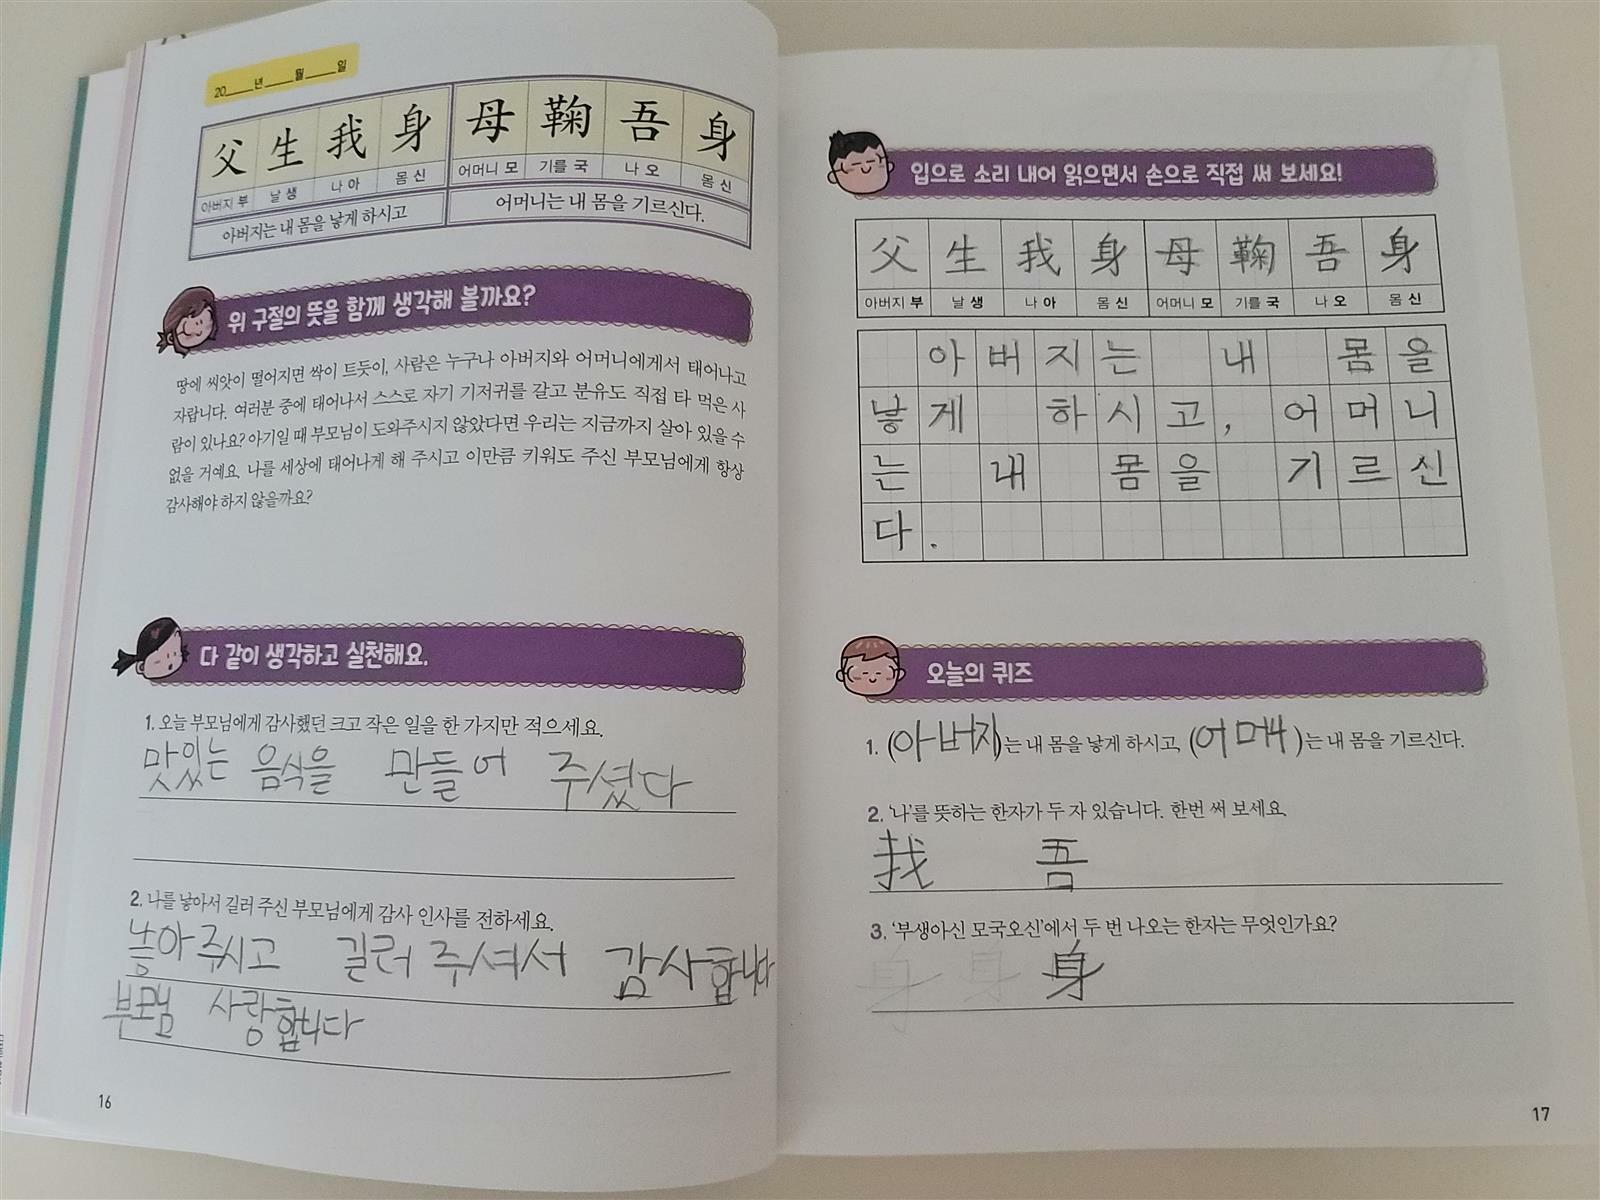 20___년___월___일
父 生 我 身 母 鞠 吾 身
아버지 부 날 생 나 아 몸 신 어머니 모 기를 국 나 오 몸 신
아버지는 내 몸을 낳게 하시고 어머니는 내 몸을 기르신다.
위 구절의 뜻을 함께 생각해 볼까요?
땅에 씨앗이 떨어지면 싹이 트듯이, 사람은 누구나 아버지와 어머니에게서 태어나고
자랍니다. 여러분 중에 태어나서 스스로 자기 기저귀를 갈고 분유도 직접 타 먹은 사
람이 있나요? 아기일 때 부모님이 도와주시지 않았다면 우리는 지금까지 살아 있을 수
없을 거예요. 나를 세상에 태어나게 해 주시고 이만큼 키워도 주신 부모님에게 항상
감사해야 하지 않을까요?
다 같이 생각하고 실천해요.
1. 오늘 부모님에게 감사했던 크고 작은 일을 한 가지만 적으세요.
맛있는 음식을 만들어 주셨다
2. 나를 낳아서 길러 주신 부모님에게 감사 인사를 전하세요.
낳아 주시고 길러 주셔서 감사합니다
부모님 사랑합니다
16
입으로 소리 내어 읽으면서 손으로 직접 써 보세요!
父 生 我 身 母 鞠 吾 身
아버지 부 날 생 나 아 몸 신 어머니 모 기를 국 나 오 몸 신
아버지는 내 몸을
낳게 하시고, 어머니
는 내 몸을 기르신
다.
오늘의 퀴즈
1. (아버지)는 내 몸을 낳게 하시고, (어머니)는 내 몸을 기르신다.
2. '나'를 뜻하는 한자가 두 자 있습니다. 한번 써 보세요.
我 吾
3. '부생아신 모국오신'에서 두 번 나오는 한자는 무엇인가요?
身 身 身
17